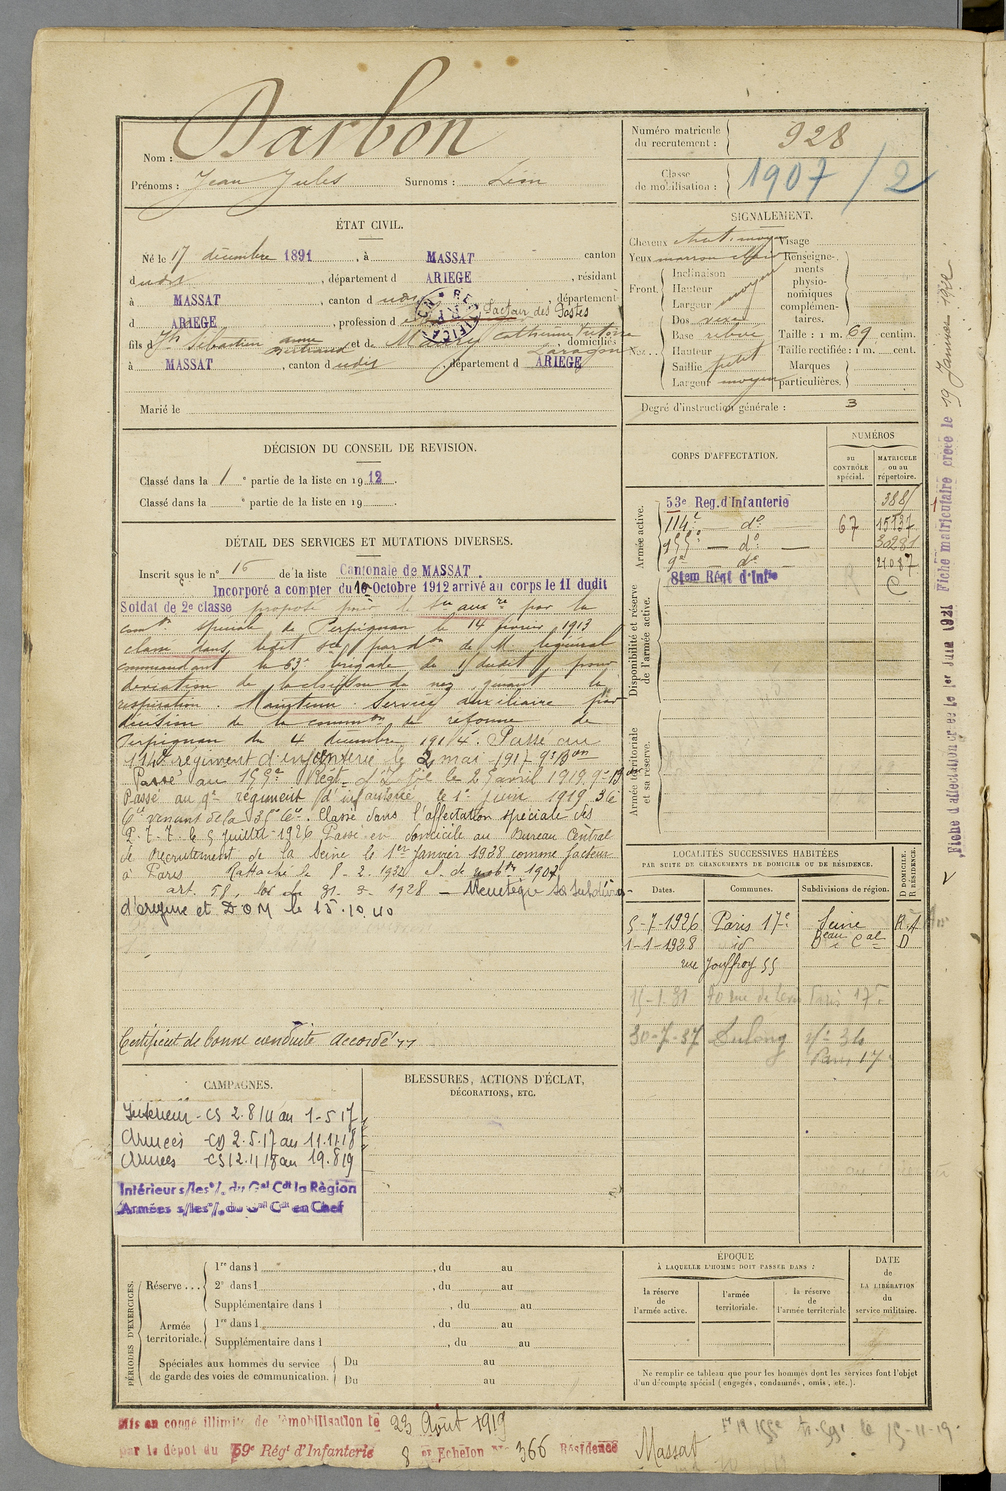 Nom : Darbon
Prénoms : Jean Jules Surnoms : Léon
Numéro matricule du recrutement : 928
Classe de mobilisation : 1907 / 2
ÉTAT CIVIL.
Né le 17 décembre 1891, à MASSAT canton
dudit, département d ARIEGE, résidant
à MASSAT, canton d udit, département
d ARIEGE, profession d facteur des Postes
fils d Jh Sébastien et de Maury Catherine, domiciliés
à MASSAT, canton d udit, département d ARIEGE
Marié le
SIGNALEMENT.
Cheveux chat. moyen Visage
Yeux marron clair
Front. Inclinaison
Hauteur
Largeur moyen
Renseignements physionomiques complémentaires.
Nez. Dos vexe
Base
Hauteur
Saillie petit
Largeur moyen
Taille : 1 m. 69 centim.
Taille rectifiée : 1 m. cent.
Marques particulières.
Degré d'instruction générale : 3
DÉCISION DU CONSEIL DE REVISION.
Classé dans la 1e partie de la liste en 1912.
Classé dans la e partie de la liste en 19 .
DÉTAIL DES SERVICES ET MUTATIONS DIVERSES.
Inscrit sous le n° 16 de la liste Cantonale de MASSAT.
Incorporé a compter du 10 Octobre 1912 arrivé au corps le 11 dudit
Soldat de 2e classe proposé pour le Sce auxre par la
comon spéciale de Perpignan le 14 février 1913
classé dans ledit sce par don de M. le général
commandant la 63e brigade de 15 dudit pour
déviation de la cloison du nez gênant la
respiration. Maintenu Service auxiliaire par
décision de la common de réforme de
Perpignan du 4 décembre 1914. Passé au
114e régiment d'infanterie le 2 mai 1917 9e Bon
Passé au 155e Régt d'Infie le 25 avril 1919 9e Bon
Passé au 9e régiment d'infanterie le 1er Juin 1919 36e
Cie venant de la 35e Cie. Classé dans l'affectation spéciale des
P.T.T. le 5 juillet 1926 Passé en domicile au Bureau Central
de Recrutement de la Seine le 1er Janvier 1928 comme facteur
à Paris Rattaché le 8-2-1932 cl. de mobon 1907
art. 58, loi du 31-3-1928
d'origine et DOM le 15.10.40
Certificat de bonne conduite accordé
CORPS D'AFFECTATION.
NUMÉROS
au CONTRÔLE spécial.
MATRICULE ou au répertoire.
Armée active.
53e Reg. d'Infanterie 3885
114e do 67 15137
155e do 30281
9e do 21087
81em Régt d'Infie
Disponibilité et réserve de l'armée active.
Armée territoriale et sa réserve.
LOCALITÉS SUCCESSIVES HABITÉES
PAR SUITE DE CHANGEMENTS DE DOMICILE OU DE RÉSIDENCE.
Dates. Communes. Subdivisions de région. D DOMICILE. R RÉSIDENCE.
5-7-1926 Paris 17e Seine R.A
1-1-1928 id Beau Cal D
rue Jouffroy 55
Paris 17e
30-7-37 Dulong n° 34
Paris 17
CAMPAGNES.
Intérieur - CS 2.8/14 au 1-5-17
Armées - CD 2.5.17 au 11.11.18
Armées - CS 12.11/18 au 19.8.19
Intérieur s/les o/. du Gal Cdt la Région
Armées s/les o/. du Gal Cdt en Chef
BLESSURES, ACTIONS D'ÉCLAT,
DÉCORATIONS, ETC.
PÉRIODES D'EXERCICES.
Réserve ... 1re dans l , du au
2e dans l , du au
Supplémentaire dans l , du au
Armée territoriale. 1re dans l , du au
Supplémentaire dans l , du au
Spéciales aux hommes du service de garde des voies de communication. Du au
Du au
ÉPOQUE
À LAQUELLE L'HOMME DOIT PASSER DANS :
la réserve de l'armée active.
l'armée territoriale.
la réserve de l'armée territoriale
DATE de LA LIBÉRATION du service militaire.
Ne remplir ce tableau que pour les hommes dont les services font l'objet
d'un décompte spécial (engagés, condamnés, omis, etc.).
Mis en congé illimité de démobilisation le 23 Août 1919
par le dépôt du 59e Régt d'Infanterie 8 et Echelon No 366 Résidence Massat
Fiche d'affectation créée le 1er Juin 1921 Fiche matriculaire créée le 19 Janvier